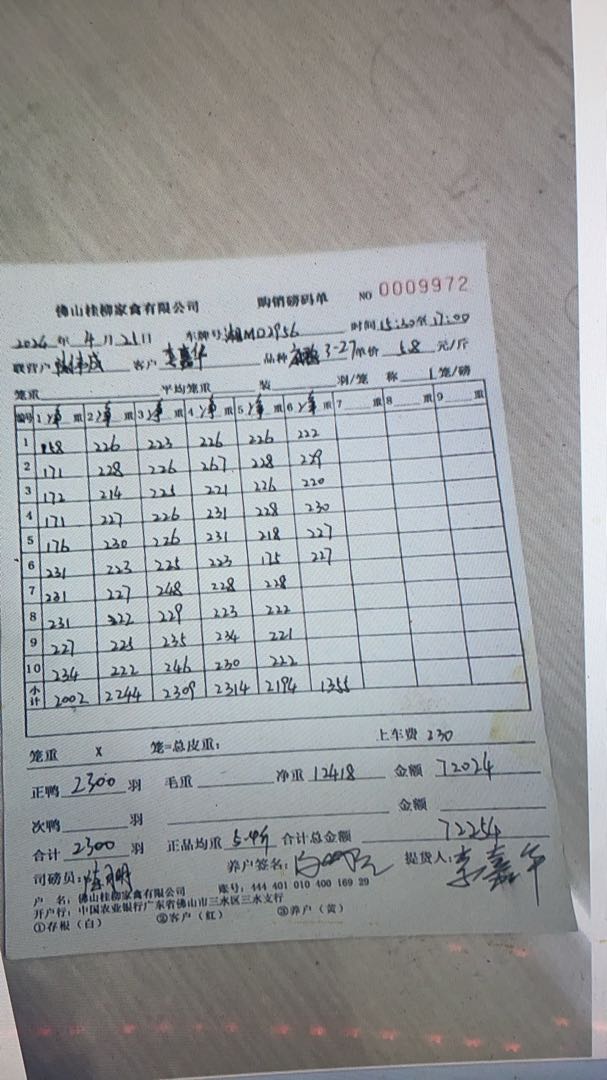 佛山桂柳家禽有限公司 购销磅码单 NO 0009972
2026年 4月 21日 车牌号 湘M02956 时间 15:30至17:00
联营户 客户 李嘉华 品种 3-27 单价 5.8 元/斤
笼重 平均笼重 装 羽/笼 称 1 笼/磅
编号 1 净 重 2 净 重 3 净 重 4 净 重 5 净 重 6 净 重 7 重 8 重 9 重
1 158 226 223 226 226 222
2 171 228 226 267 228 229
3 172 214 225 221 226 220
4 171 227 226 231 228 230
5 176 230 226 231 218 227
6 231 223 225 223 175 227
7 231 227 248 228 228
8 231 222 229 223 222
9 227 225 235 234 221
10 234 222 246 230 222
小计 2002 2244 2309 2314 2194 1355
笼重 X 笼=总皮重: 上车费 230
正鸭 2300 羽 毛重 净重 12418 金额 72024
次鸭 羽 金额
合计 2300 羽 正品均重 5.4斤 合计总金额 72254
司磅员: 养户签名: 提货人: 李嘉华
户 名: 佛山桂柳家禽有限公司 账号: 444 401 010 400 169 29
开户行: 中国农业银行广东省佛山市三水区三水支行
①存根（白） ②客户（红） ③养户（黄）